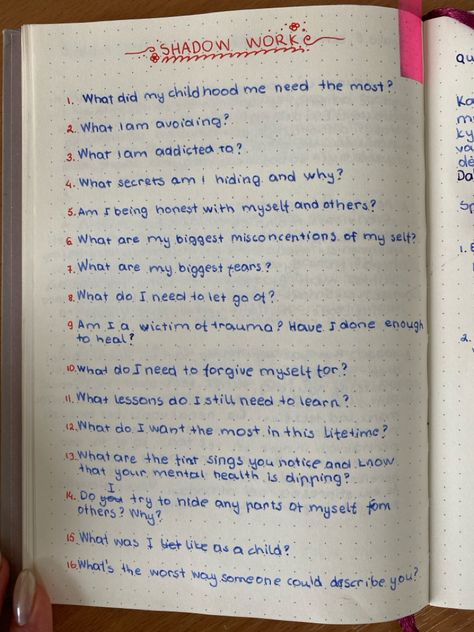 SHADOW WORK
1. What did my childhood me need the most?
2. What I am avoiding?
3. What I am addicted to?
4. What secrets am I hiding and why?
5. Am I being honest with myself and others?
6. What are my biggest misconcentions of my self?
7. What are my biggest fears?
8. What do I need to let go of?
9 Am I a victim of trauma? Have I done enough
to heal?
10. What do I need to forgive myself for?
11. What lessons do I still need to learn?
12. What do I want the most in this lifetime?
13. What are the first sings you notice and know
that your mental health is dipping?
14. Do I try to hide any parts of myself from
others? Why?
15. What was I like as a child?
16. What's the worst way someone could describe you?
qu
Ka
m
ky
va
dė
Da
Sp
1.
2.